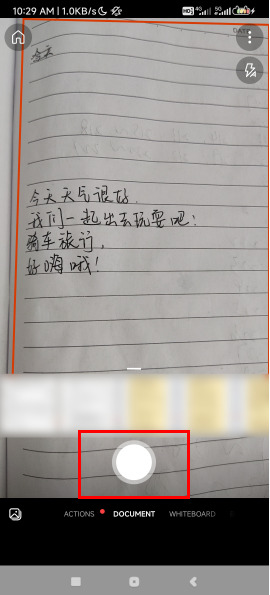 10:29 AM | 1.0KB/s
HD 4G 5G
今天
今天天气很好.
我们一起出去玩耍吧:
骑车旅行,
好嗨哦!
ACTIONS DOCUMENT WHITEBOARD